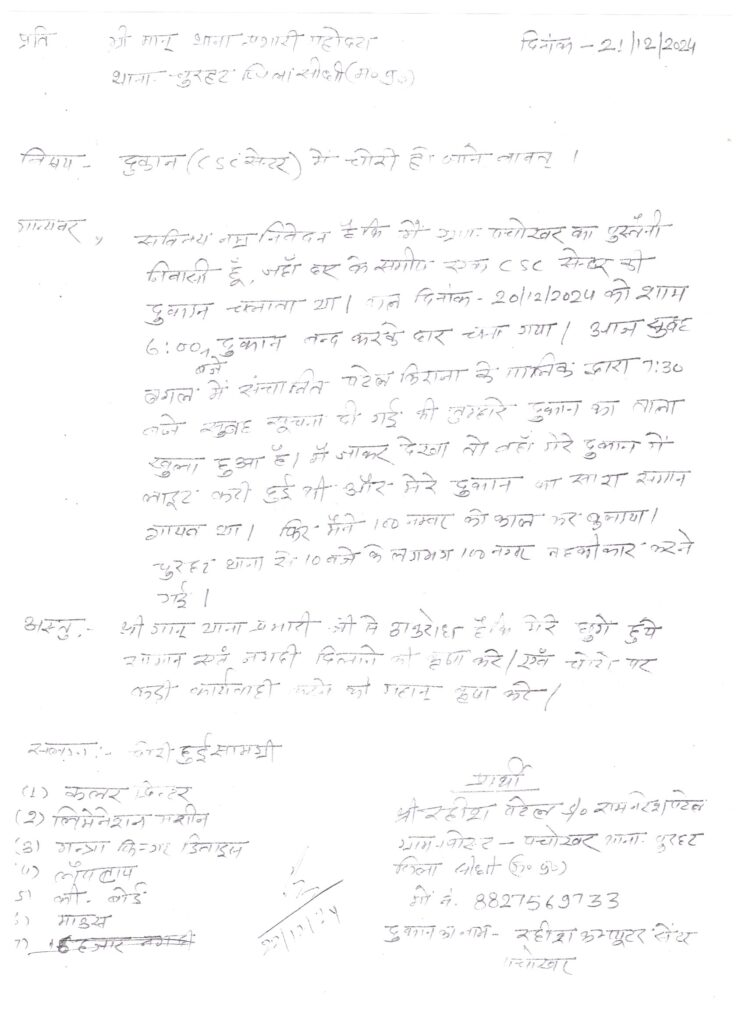 प्रति श्री मान् थाना प्रभारी महोदय दिनांक - 21/12/2024
थाना - चुरहट जिला सीधी (म० प्र०)
विषय - दुकान (CSC सेन्टर) में चोरी हो जाने बावत् ।
मान्यवर,
सविनय नम्र निवेदन है कि मैं ग्राम पचोखर का पुस्तैनी
निवासी हूँ, जहाँ घर के समीप एक CSC सेन्टर की
दुकान चलाता था। कल दिनांक - 20/12/2024 को शाम
6:00 बजे दुकान बन्द करके घर चला गया। आज सुबह
बगल में संचालित पटेल किराना के मालिक द्वारा 7:30
बजे सुबह सूचना दी गई की तुम्हारे दुकान का ताला
खुला हुआ है। मैं जाकर देखा तो वहाँ मेरे दुकान में
लाइट कटी हुई थी और मेरे दुकान का सारा समान
गायब था। फिर मैने 100 नम्बर को काल कर बुलाया।
चुरहट थाना से 10 बजे के लगभग 100 नम्बर करने
गई।
अस्तु :- श्री मान् थाना प्रभारी जी से अनुरोध है कि मेरे हुये
समान एवं नगदी दिलाने की कृपा करे। एवं चोरो पर
कडी कार्यवाही करने की महान् कृपा करे।
संलग्न :- चोरी हुई सामग्री
(1) कलर प्रिन्टर
(2) लिमेनेशन मशीन
(3)
(4) लैपटाप
5) की-बोर्ड
6) माउस
7) हजार नगदी
22/12/24
प्रार्थी
श्री रहीश पटेल S/o रामनरेश पटेल
ग्राम पोस्ट - पचोखर थाना चुरहट
जिला सीधी (म० प्र०)
मो नं. 8827569733
दुकान का नाम - रहीश कम्प्यूटर सेंटर
पचोखर